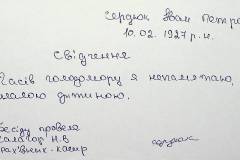 Сердюк Іван Петро
10.02.1927 р.н.
Свідчення
Часів голодомору я непамятаю,
малою дитиною.
Бесіду провела
Н.В
сердюк